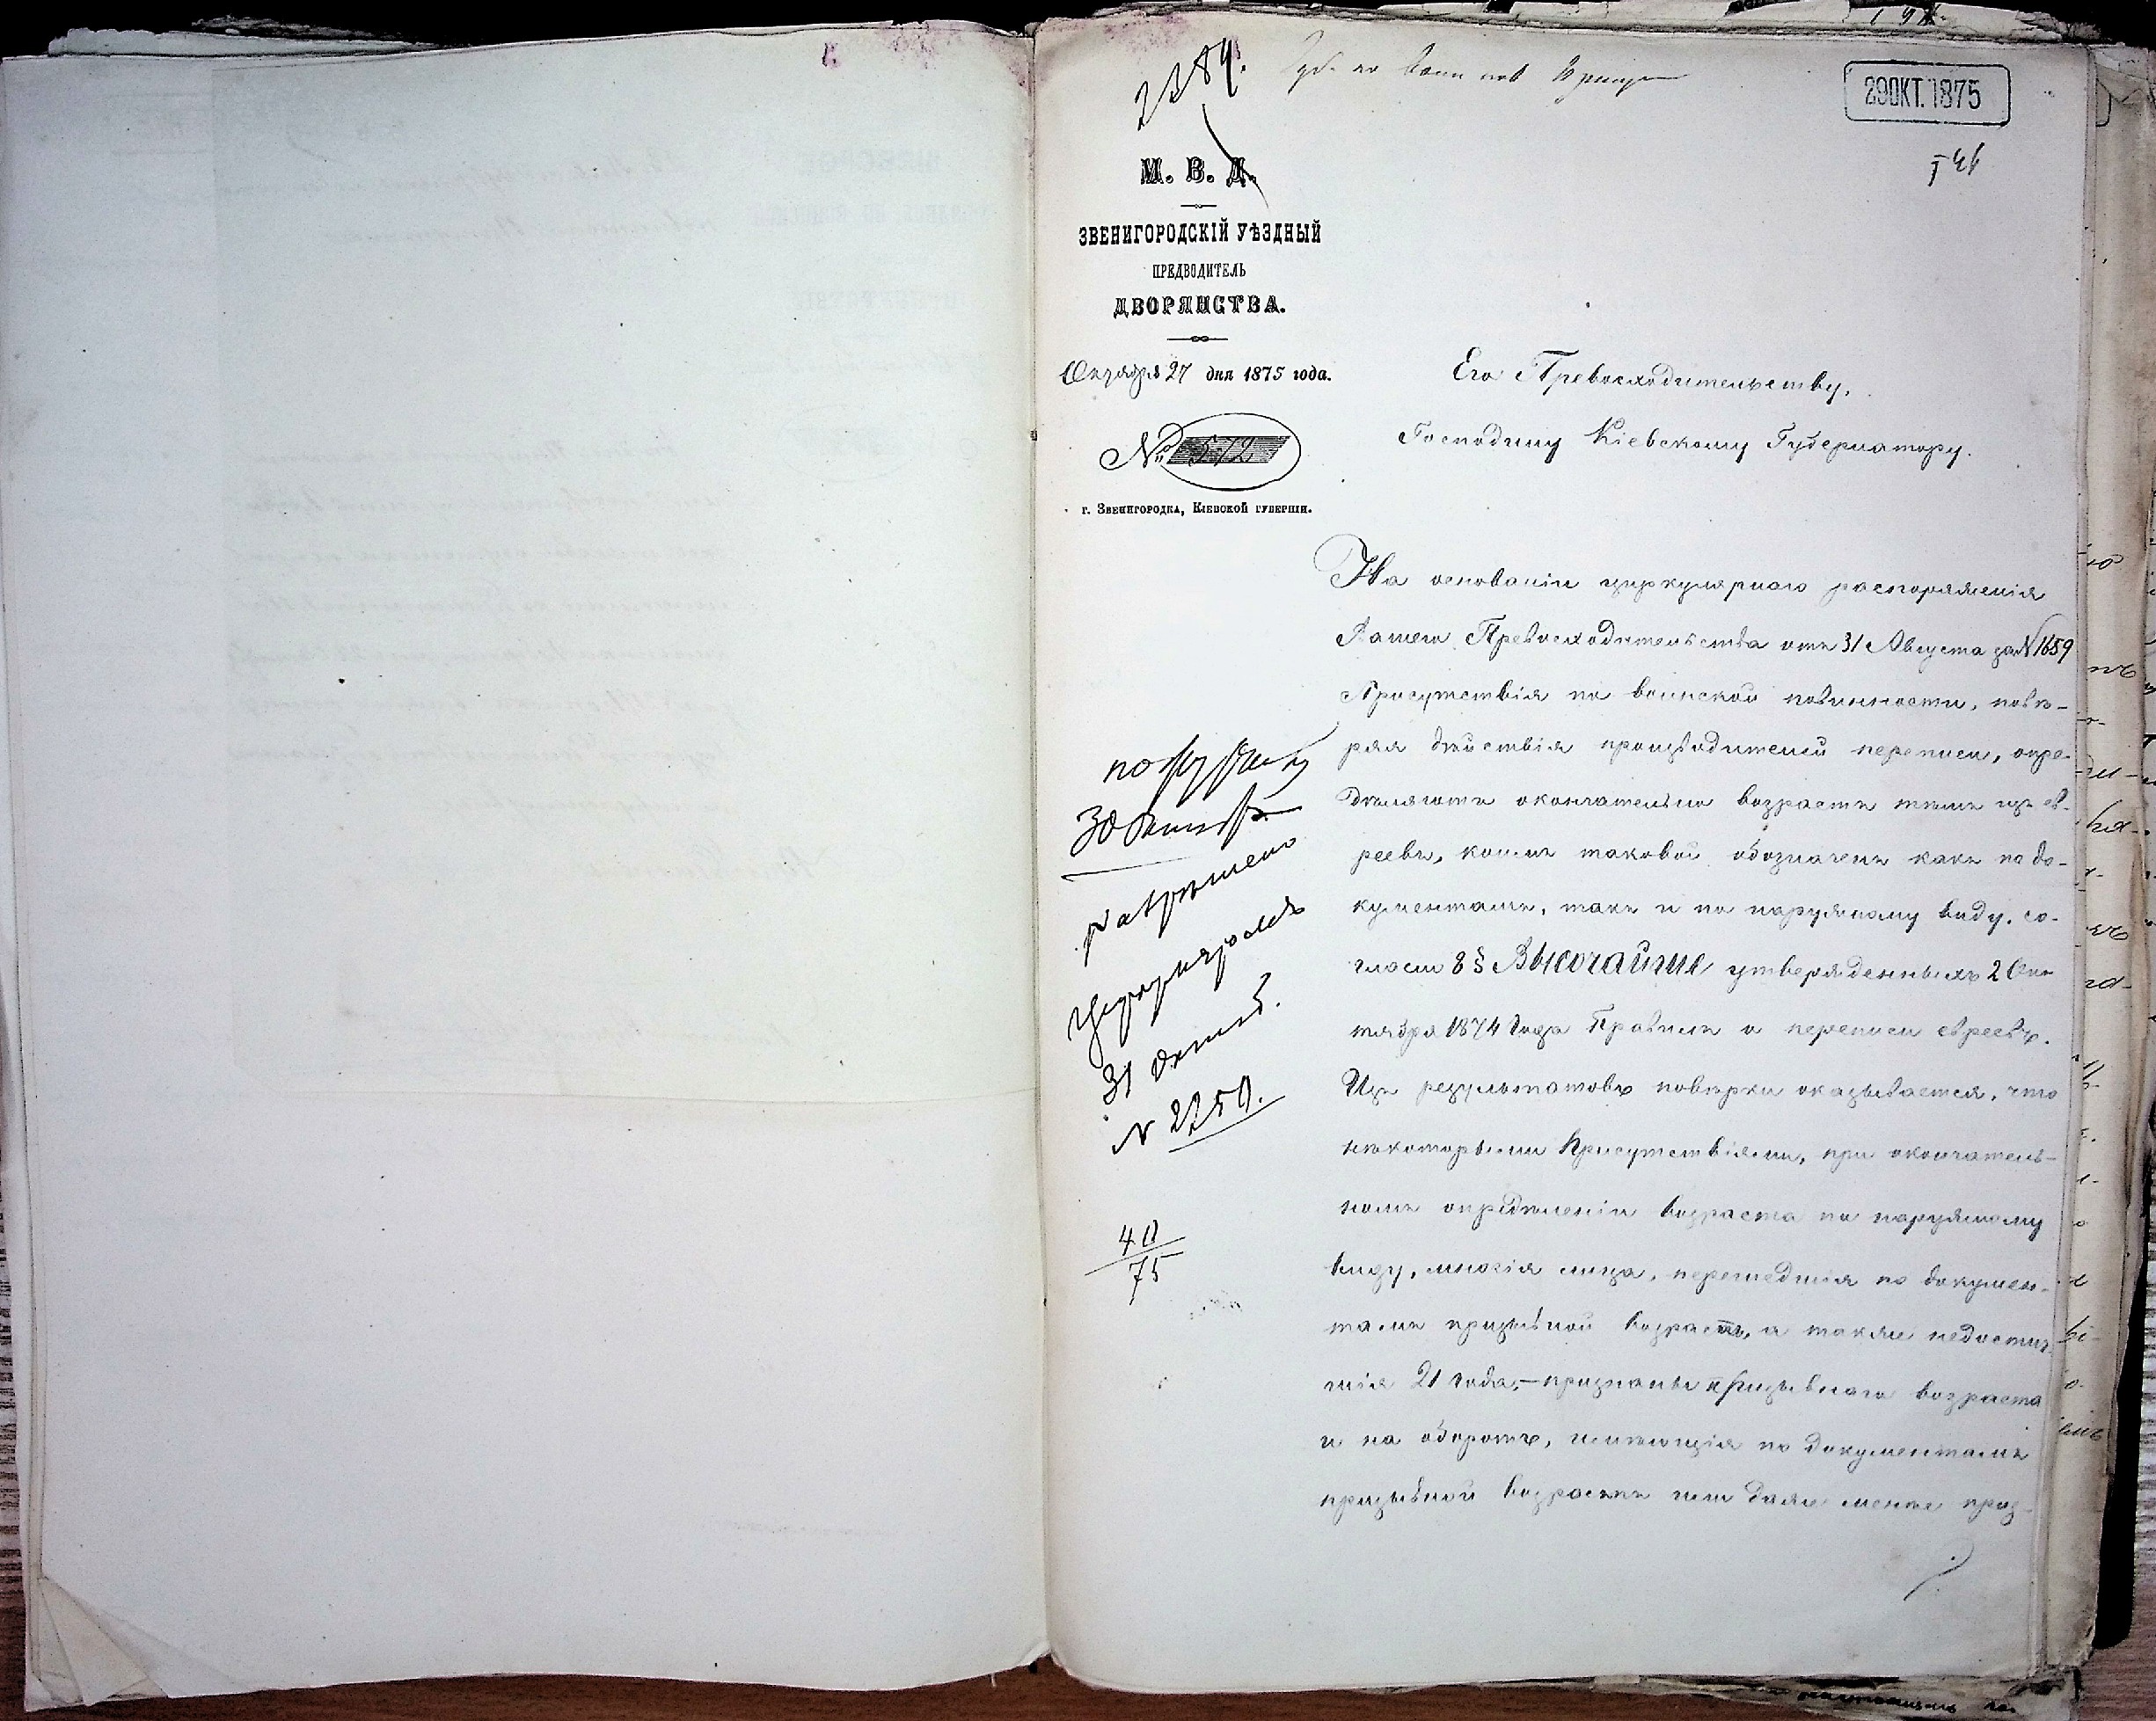 2384.
29 ОКТ. 1875
М. В. Д.
ЗВЕНИГОРОДСКІЙ УѢЗДНЫЙ
ПРЕДВОДИТЕЛЬ
ДВОРЯНСТВА.
Октября 27 дня 1875 года.
№ 572
г. Звенигородка, Кіевской губерніи.
Его Превосходительству,
Господину Кіевскому Губернатору.
На основаніи циркулярнаго распоряженія
Вашего Превосходительства отъ 31 Августа за № 1659
Присутствія по воинской повинности, повѣ-
ряя дѣйствія производителей переписи, опре-
дѣляютъ окончательно возрастъ тѣмъ изъ ев-
реевъ, коимъ таковой обозначенъ какъ по до-
кументамъ, такъ и по наружному виду, со-
гласно 8 § Высочайше утвержденныхъ 2 Ок-
тября 1874 года Правилъ о переписи евреевъ.
Изъ результатовъ повѣрки оказывается, что
нѣкоторыми Присутствіями, при окончатель-
номъ опредѣленіи возраста по наружному
виду, многія лица, перешедшія по докумен-
тамъ призывной возрастъ, а также недостиг-
шія 21 года, – признаны призывнаго возраста
и на оборотъ, имѣющія по документамъ
призывной возрастъ или даже менѣе приз-
30 Октяб.
разрѣшено
циркуляромъ
31 Октяб.
№ 2250.
40
75